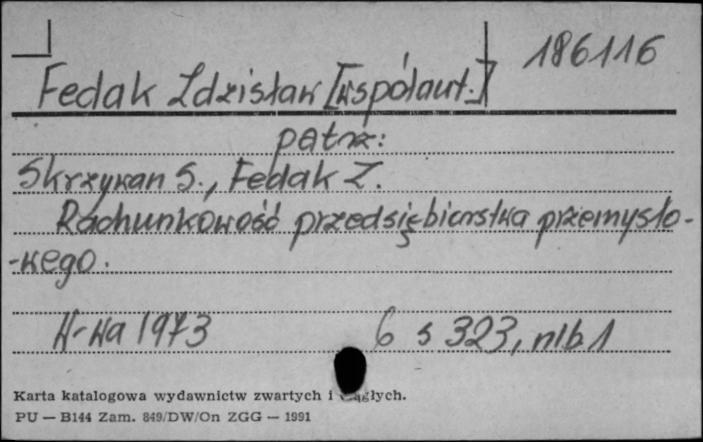 186116
Fedak Zdzisław [współaut.]
patrz:
Skrzywan S., Fedak Z.
Rachunkowość przedsiębiorstwa przemysło-
-wego.
W-wa 1973 6 s 323, nlb 1
Karta katalogowa wydawnictw zwartych i ciągłych.
PU — B144 Zam. 849/DW/On ZGG — 1991